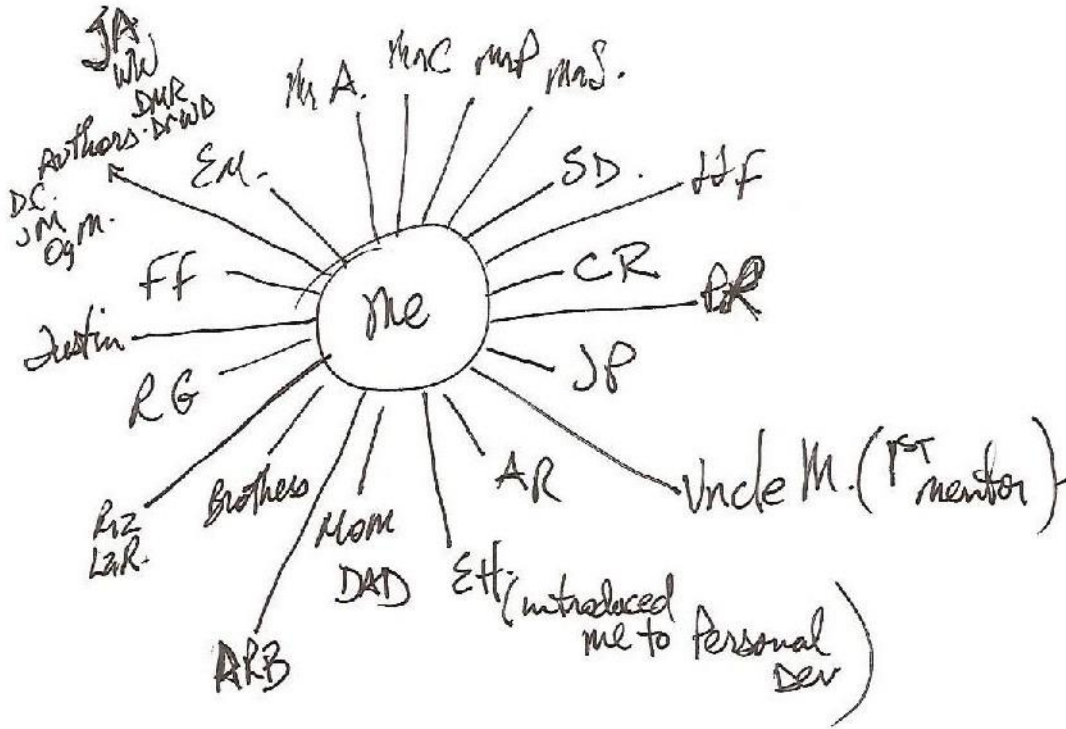 JA
WW
DMR
Authors. DrWD
DC.
JM
Og M.
EM.
Mr A.
Mr C
Mr P
Mr S.
SD.
JJF
CR
BR
JP
Uncle M. (1ST mentor)
AR
EH. (introduced
me to Personal
Dev)
MOM
DAD
ARB
Brothers
RG
Justin
FF
me